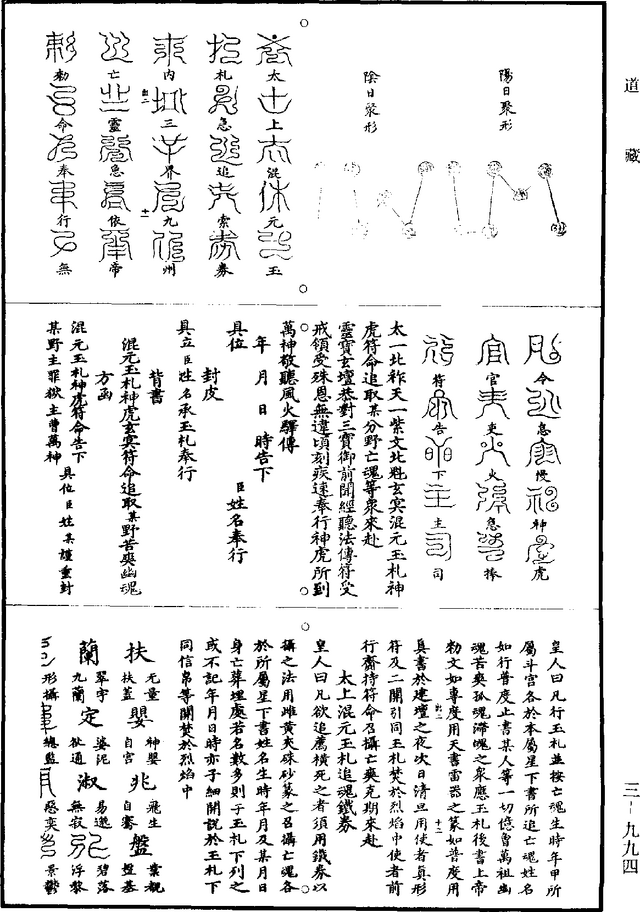 道藏
三-九九四
陽日聚形
陰日聚形
太上混元玉
札急追索券
內三界九州
亡靈急依帝
勑命奉行無
令怠慢神虎
官吏火急捧
符告下主司
太一北祚天一紫文北魁玄冥混元玉札神
虎符命追取某分野亡魂等衆來赴
靈寶玄壇恭對三寶御前聞經聽法傳符受
戒領受殊恩無違頃刻疾速奉行神虎所到
萬神敬聽風火驛傳
年 月 日 時告下
具位 臣姓名奉行
封皮
具立臣姓名承玉札奉行
背書
混元玉札神虎玄冥符命追取某野苦爽幽魂
方函
混元玉札神虎符命告下 具位臣姓某謹重封
某野主罪獄主曹萬神
皇人曰凡行玉札並按亡魂生時年甲所
屬斗宮各於本屬星下書所追亡魂姓名
如行普度止書某人等一切億曾萬祖幽
魂苦爽孤魂滯魄之衆應玉札後書上帝
勑文如專度用天書雷器之篆如普度用
真書於建壇之夜次日清旦用使者真形
符及二關引同玉札焚於烈焰中使者前
行齋持符命召攝亡爽克期來赴
太上混元玉札追魂鐵券
皇人曰凡欲追薦橫死之者須用鐵券以
攝之法用雌黃夾硃砂篆之召攝亡魂各
於所屬星下書姓名生時年月及某月日
身亡葬埋處若名數多則于玉札下列之
或不記年月日時亦子細開說於玉札下
同信帛等關焚於烈焰中
扶 无量 扶蓋 嬰 神嬰 自宮 兆 飛生 自騫 盤 業觀
蘭 翠宇 九蘭 定 婆泥 祉通 淑 易邈 無寂 碧落 浮黎
形攝 總監 惡奕 景鬱